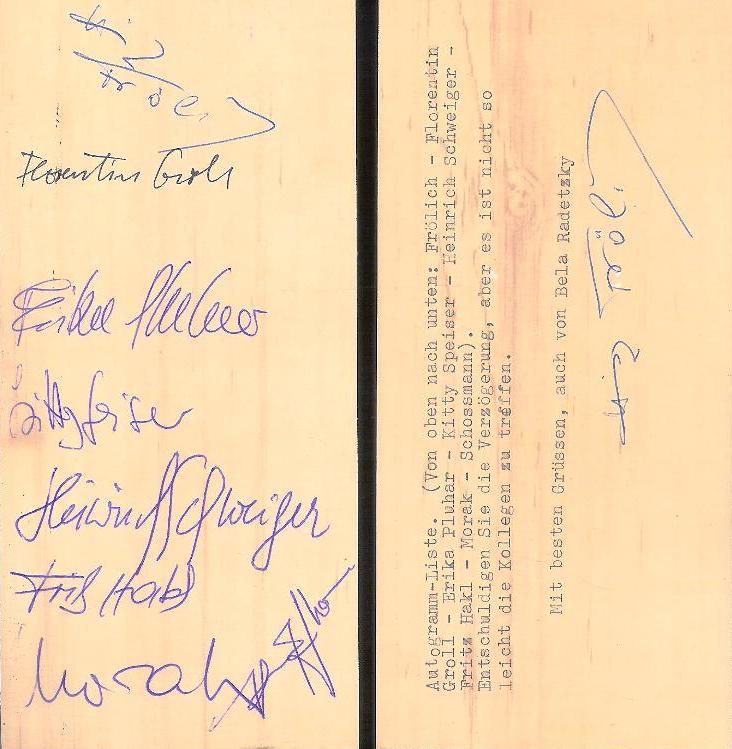 Florentin Groll
Erika Pluhar
Kitty Speiser
Heinrich Schweiger
Fritz Hakl
Morak
Autogramm-Liste. (Von oben nach unten: Frölich - Florentin
Groll - Erika Pluhar - Kitty Speiser - Heinrich Schweiger -
Fritz Hakl - Morak - Schossmann).
Entschuldigen Sie die Verzögerung, aber es ist nicht so
leicht die Kollegen zu treffen.
Mit besten Grüssen, auch von Bela Radetzky